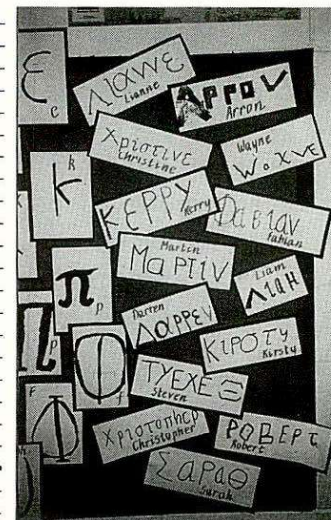 ε
e
Λιαννε
Lianne
Αρρον
Arron
Χριστινε
Christine
Wayne
WαΧνε
k
κ
ΚΕΡΡΥ
Kerry
Dαβιαν
Fabian
Martin
ΜαΡΤΙν
Liam
ΛΙαΗ
π
p
Darren
Λαρρεν
ΚΙΡΟΤΥ
Kirsty
p
Φ
f
ΤΥΕΧΕΞ
Steven
F
Φ
Χριοτοπηερ
Christopher
ΡΟΒΕΡτ
Robert
ΣαραΘ
Sarah